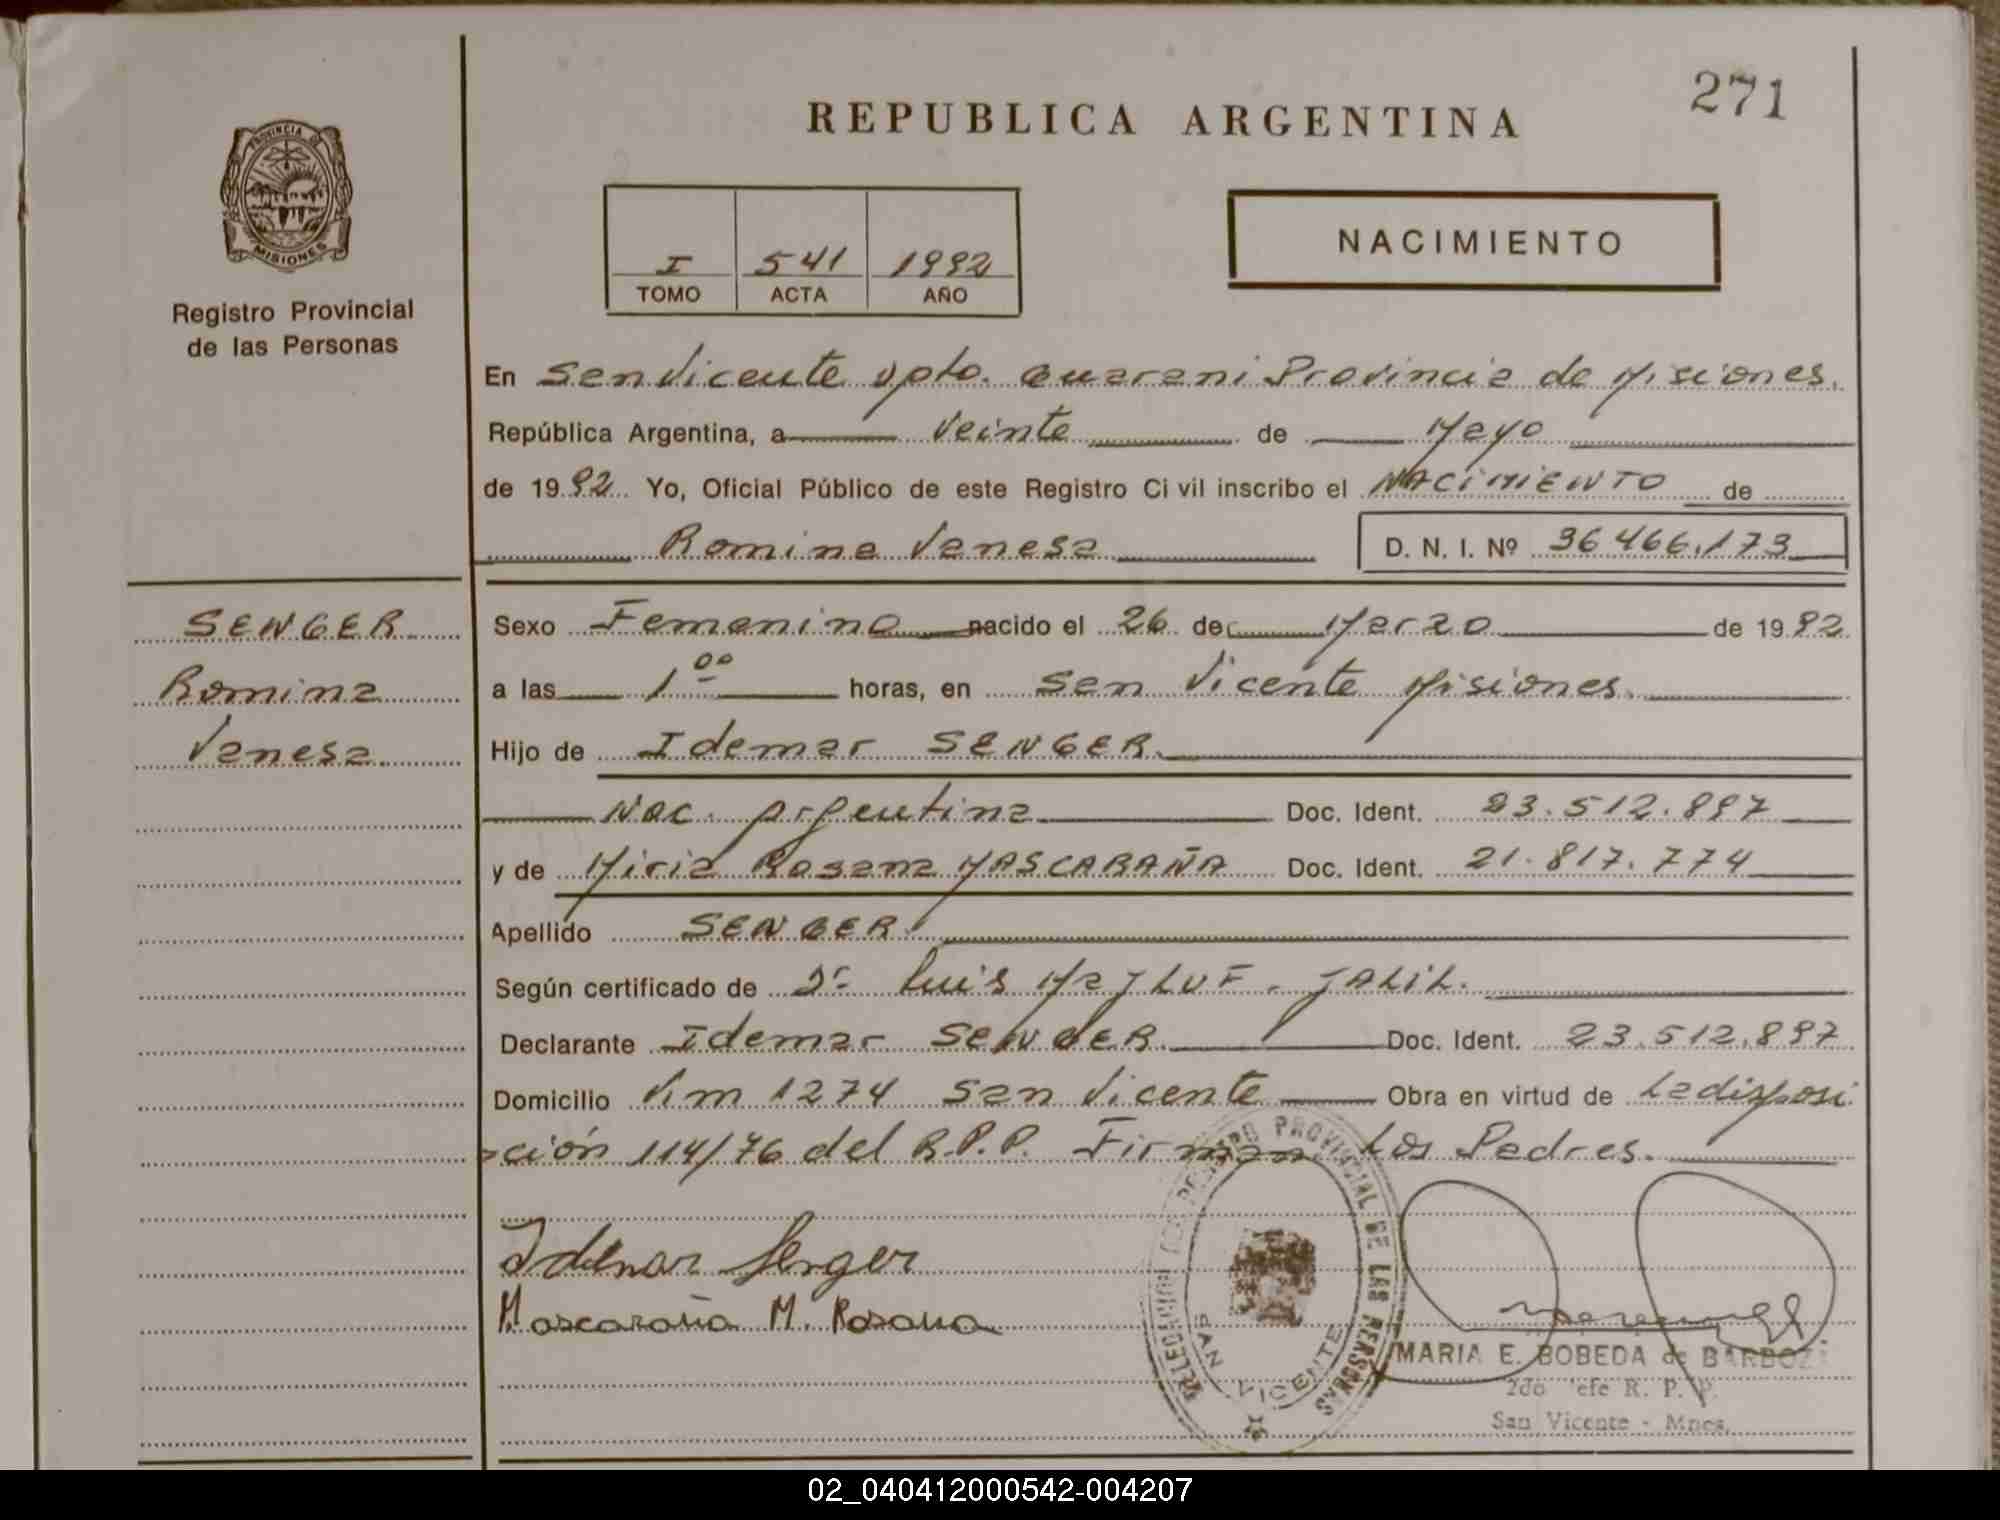 271
REPUBLICA ARGENTINA
PROVINCIA DE
MISIONES
Registro Provincial
de las Personas
I 541 1992
TOMO ACTA AÑO
NACIMIENTO
En San Vicente Dpto. Guarani Provincia de Misiones.
República Argentina, a Veinte de Mayo
de 1992 Yo, Oficial Público de este Registro Civil inscribo el NACIMIENTO de
Romina Vanesa D. N. I. Nº 36466.173
SENGER
Romina
Vanesa.
Sexo Femenino nacido el 26 de Marzo de 1992
a las 1ºº horas, en San Vicente Misiones.
Hijo de Idemar SENGER.
Nac. Argentina Doc. Ident. 23.512.897
y de Miria Rosana MASCARAÑA Doc. Ident. 21.817.774
Apellido SENGER
Según certificado de Dr Luis JALIL.
Declarante Idemar SENGER. Doc. Ident. 23.512.897
Domicilio Km 1274 San Vicente Obra en virtud de La disposi
ción 114/76 del R.P.P. Firman Los Padres.
Idemar Senger
Mascaraña M. Rosana
DELEGACION REGISTRO PROVINCIAL DE LAS PERSONAS
SAN VICENTE
MARIA E. BOBEDA de BARBOZA
2do Jefe R. P. P.
San Vicente - Mnes.
02_040412000542-004207